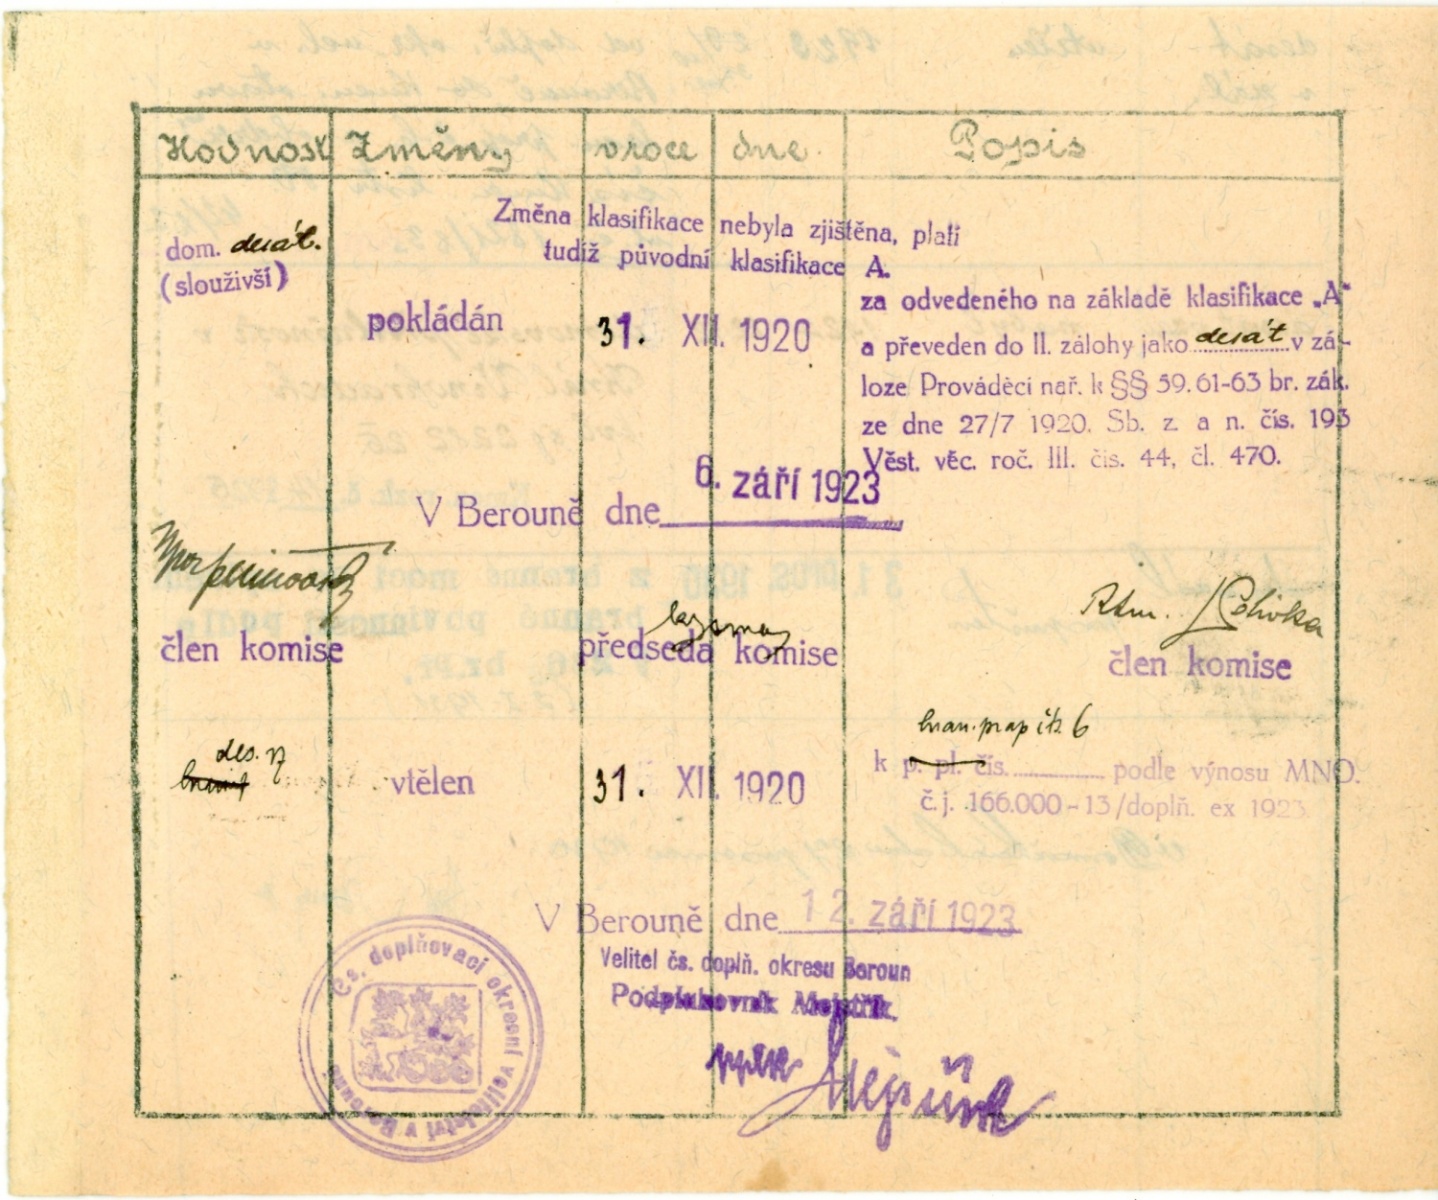 Hodnost Změny v roce dne Popis
Změna klasifikace nebyla zjištěna, platí
tudíž původní klasifikace A.
dom. desát.
(sloužívší)
pokládán 31. XII. 1920
za odvedeného na základě klasifikace „A"
a převeden do II. zálohy jako desát v zá-
loze Prováděcí nař. k §§ 59.61-63 br. zák.
ze dne 27/7 1920. Sb. z. a n. čís. 193
Věst. věc. roč. III. čís. 44, čl. 470.
V Berouně dne 6. září 1923
Rtm.
člen komise předseda komise člen komise
des. vtělen 31. XII. 1920
k p. pl. čís. podle výnosu MNO.
č.j. 166.000-13/doplň. ex 1923
V Berouně dne 12. září 1923
Velitel čs. doplň. okresu Beroun
Podplukovník Mejstřík.
Mejstřík
Čs. doplňovací okresní velitelství v Berouně